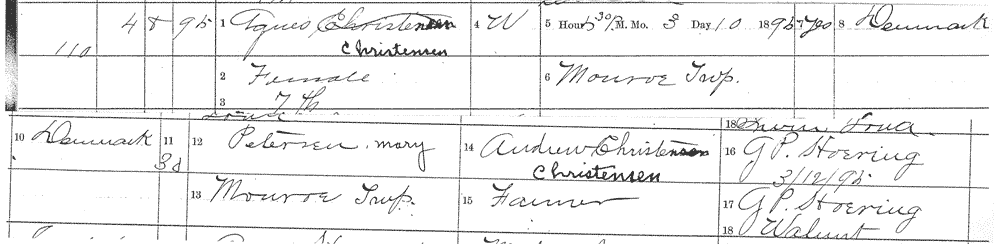 110 4 8 95 1 Agnes Christensen 4 W 5 Hour 5 30 P. M. Mo. 3 Day 10 1895 7 yes 8 Denmark
Christensen
2 Female 6 Monroe Twp.
3 7th
10 Denmark 11 3d 12 Petersen, Mary 14 Andrew Christensen 16 G P. Hoering
Christensen 3/12/95
13 Monroe Twp. 15 Farmer 17 G P. Hoering
18 Walnut